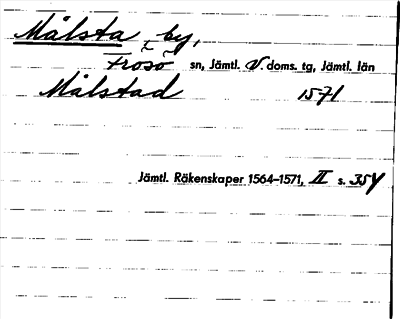 Målsta by,
Frösö sn, Jämtl. V. doms. tg, Jämtl. län
Målstad 1571
Jämtl. Räkenskaper 1564–1571, II s. 354